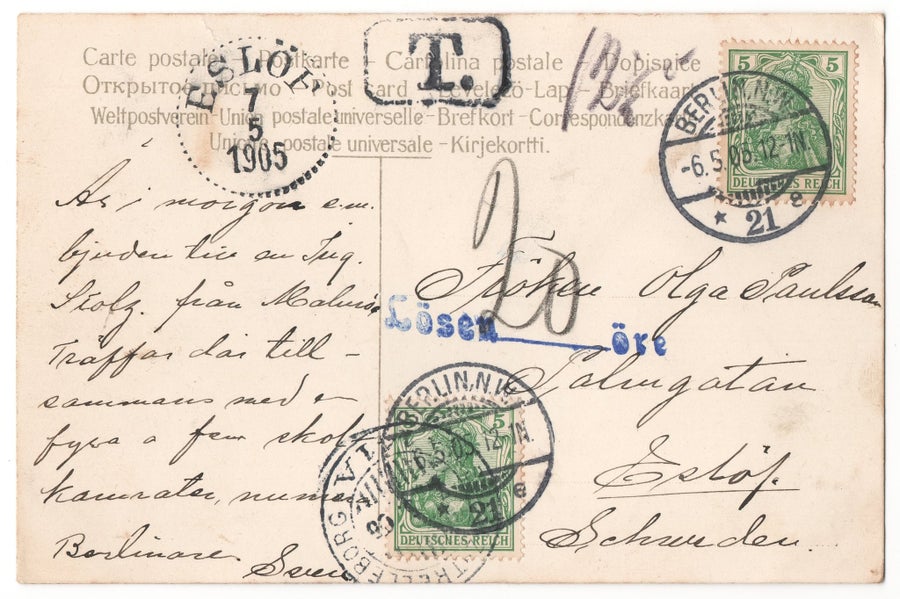 Carte postale – Postkarte – Cartolina postale – Dopisnice
Открытое письмо – Post card – Levelező-Lap – Briefkaart
Weltpostverein – Union postale universelle – Brefkort – Correspondenzkarte
Unione postale universale – Kirjekortti.
ESLÖF
7
5
1905
T.
5 5
DEUTSCHES REICH
BERLIN, N.W.
-6.5.05. 12-1N.
* 21 e
20
Lösen öre
Är i morgon e.m.
bjuden till en Ing.
Stolz från Malmö.
Träffar där till-
sammans med en
fyra a fem skol-
kamrater, numera
Berlinare
Sven
Fröken Olga Paulsson
Palmgatan
Eslöf.
Schweden.
BERLIN, N.W.
6.5.05. 12-1N.
* 21 e
5
DEUTSCHES REICH
TRELLEBORG